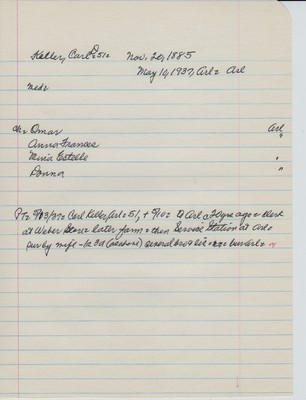 Keller, Carl D 51 = Nov. 20, 1885
May 10, 1937, Arl = Arl
Med =
Ch = Omar Arl
Anna Frances "
Maria Estelle "
Donna "
PTs 5/13/37 = Carl Keller, Arl = 51, + 5/10 = to Arl yrs ago = clerk
at Weber Store = later farm = then Service Station at Arl =
sur by wife - (& 3d ) several bros & sis = = bur Arl =